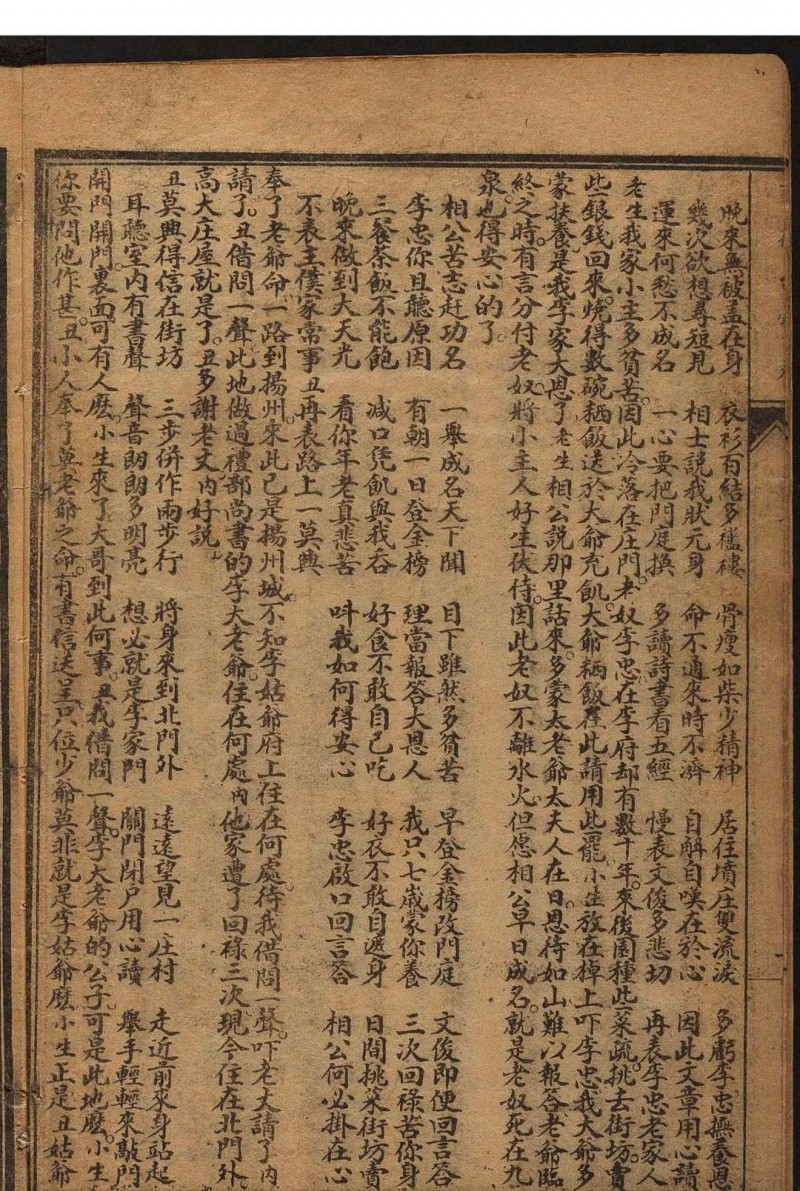 晚來無被盖在身　衣衫百結多襤褸　骨瘦如柴少精神　居住墳庄雙流淚　多虧李忠撫養恩
幾次欲想尋短見　相士說我狀元身　命不通來時不濟　自解自嘆在於心　因此文章用心讀
運來何愁不成名　一心要把門庭換　多讀詩書看五經　慢表文俊多悲切　再表李忠老家人
老生我家小主多貧苦。因此冷落在庄門。老奴李忠在李府却有數十年。來後園種此菜疏。挑去街坊。賣
些銀錢回來。燒得數碗粞飯送於大爺充飢。大爺粞飯在此請用此罷小生放在棹上吓李忠我大爺多
蒙扶養是我李家大恩了老生相公說那里話來。多蒙太老爺太夫人在日。恩待如山難以報答老爺臨
終之時。有言分付老奴。將小主人好生伏侍。因此老奴不離水火但愿相公早日成名。就是老奴死在九
泉。也得安心的了。
相公苦志赶功名　一舉成名天下聞　目下雖然多貧苦　早登金榜改門庭　文俊即便回言答
李忠你且聽原因　有朝一日登金榜　理當報答大恩人　我只七歲蒙你養　三次回祿苦你身
三餐茶飯不能飽　减口凭飢與我吞　好食不敢自己吃　好衣不敢自遮身　日間挑菜街坊賣
晚來做到大天光　看你年老真悲苦　呌我如何得安心　李忠啟口回言答　相公何必掛在心
不表主僕家常事　丑再表路上一莫興
奉了老爺命。一路到揚州。來此已是揚州城。不知李姑爺府上住在何處。待我借問一聲。吓老大請了內
請了。丑借問一聲此地做過禮部尚書的李大老爺。住在何處內他家遭了回祿三次。現今住在北門外。
高大庄屋就是了。丑多謝老丈內好說
丑莫興得信在街坊　三步併作兩步行　將身來到北門外　遠遠望見一庄村　走近前來身站起
耳聽室內有書聲　聲音朗朗多明亮　想必就是李家門　關門閉戶用心讀　舉手輕輕來敲門
開門開門。裏面可有人麽。小生來了大哥到此何事。丑我借問一聲。李大老爺的公子。可是此地麽。小生
你要問他作甚丑小人奉了莫老爺之命。有書信送呈只位少爺莫非就是李姑爺麽小生正是丑姑爺